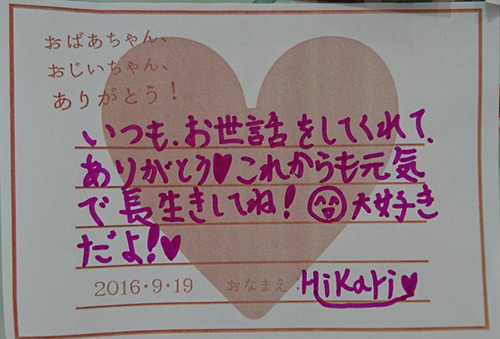 おばあちゃん、
おじいちゃん、
ありがとう!
いつも、お世話をしてくれて、
ありがとう♥これからも元気
で長生きしてね!😊大好き
だよ!♥
2016・9・19 おなまえ:Hikari♥